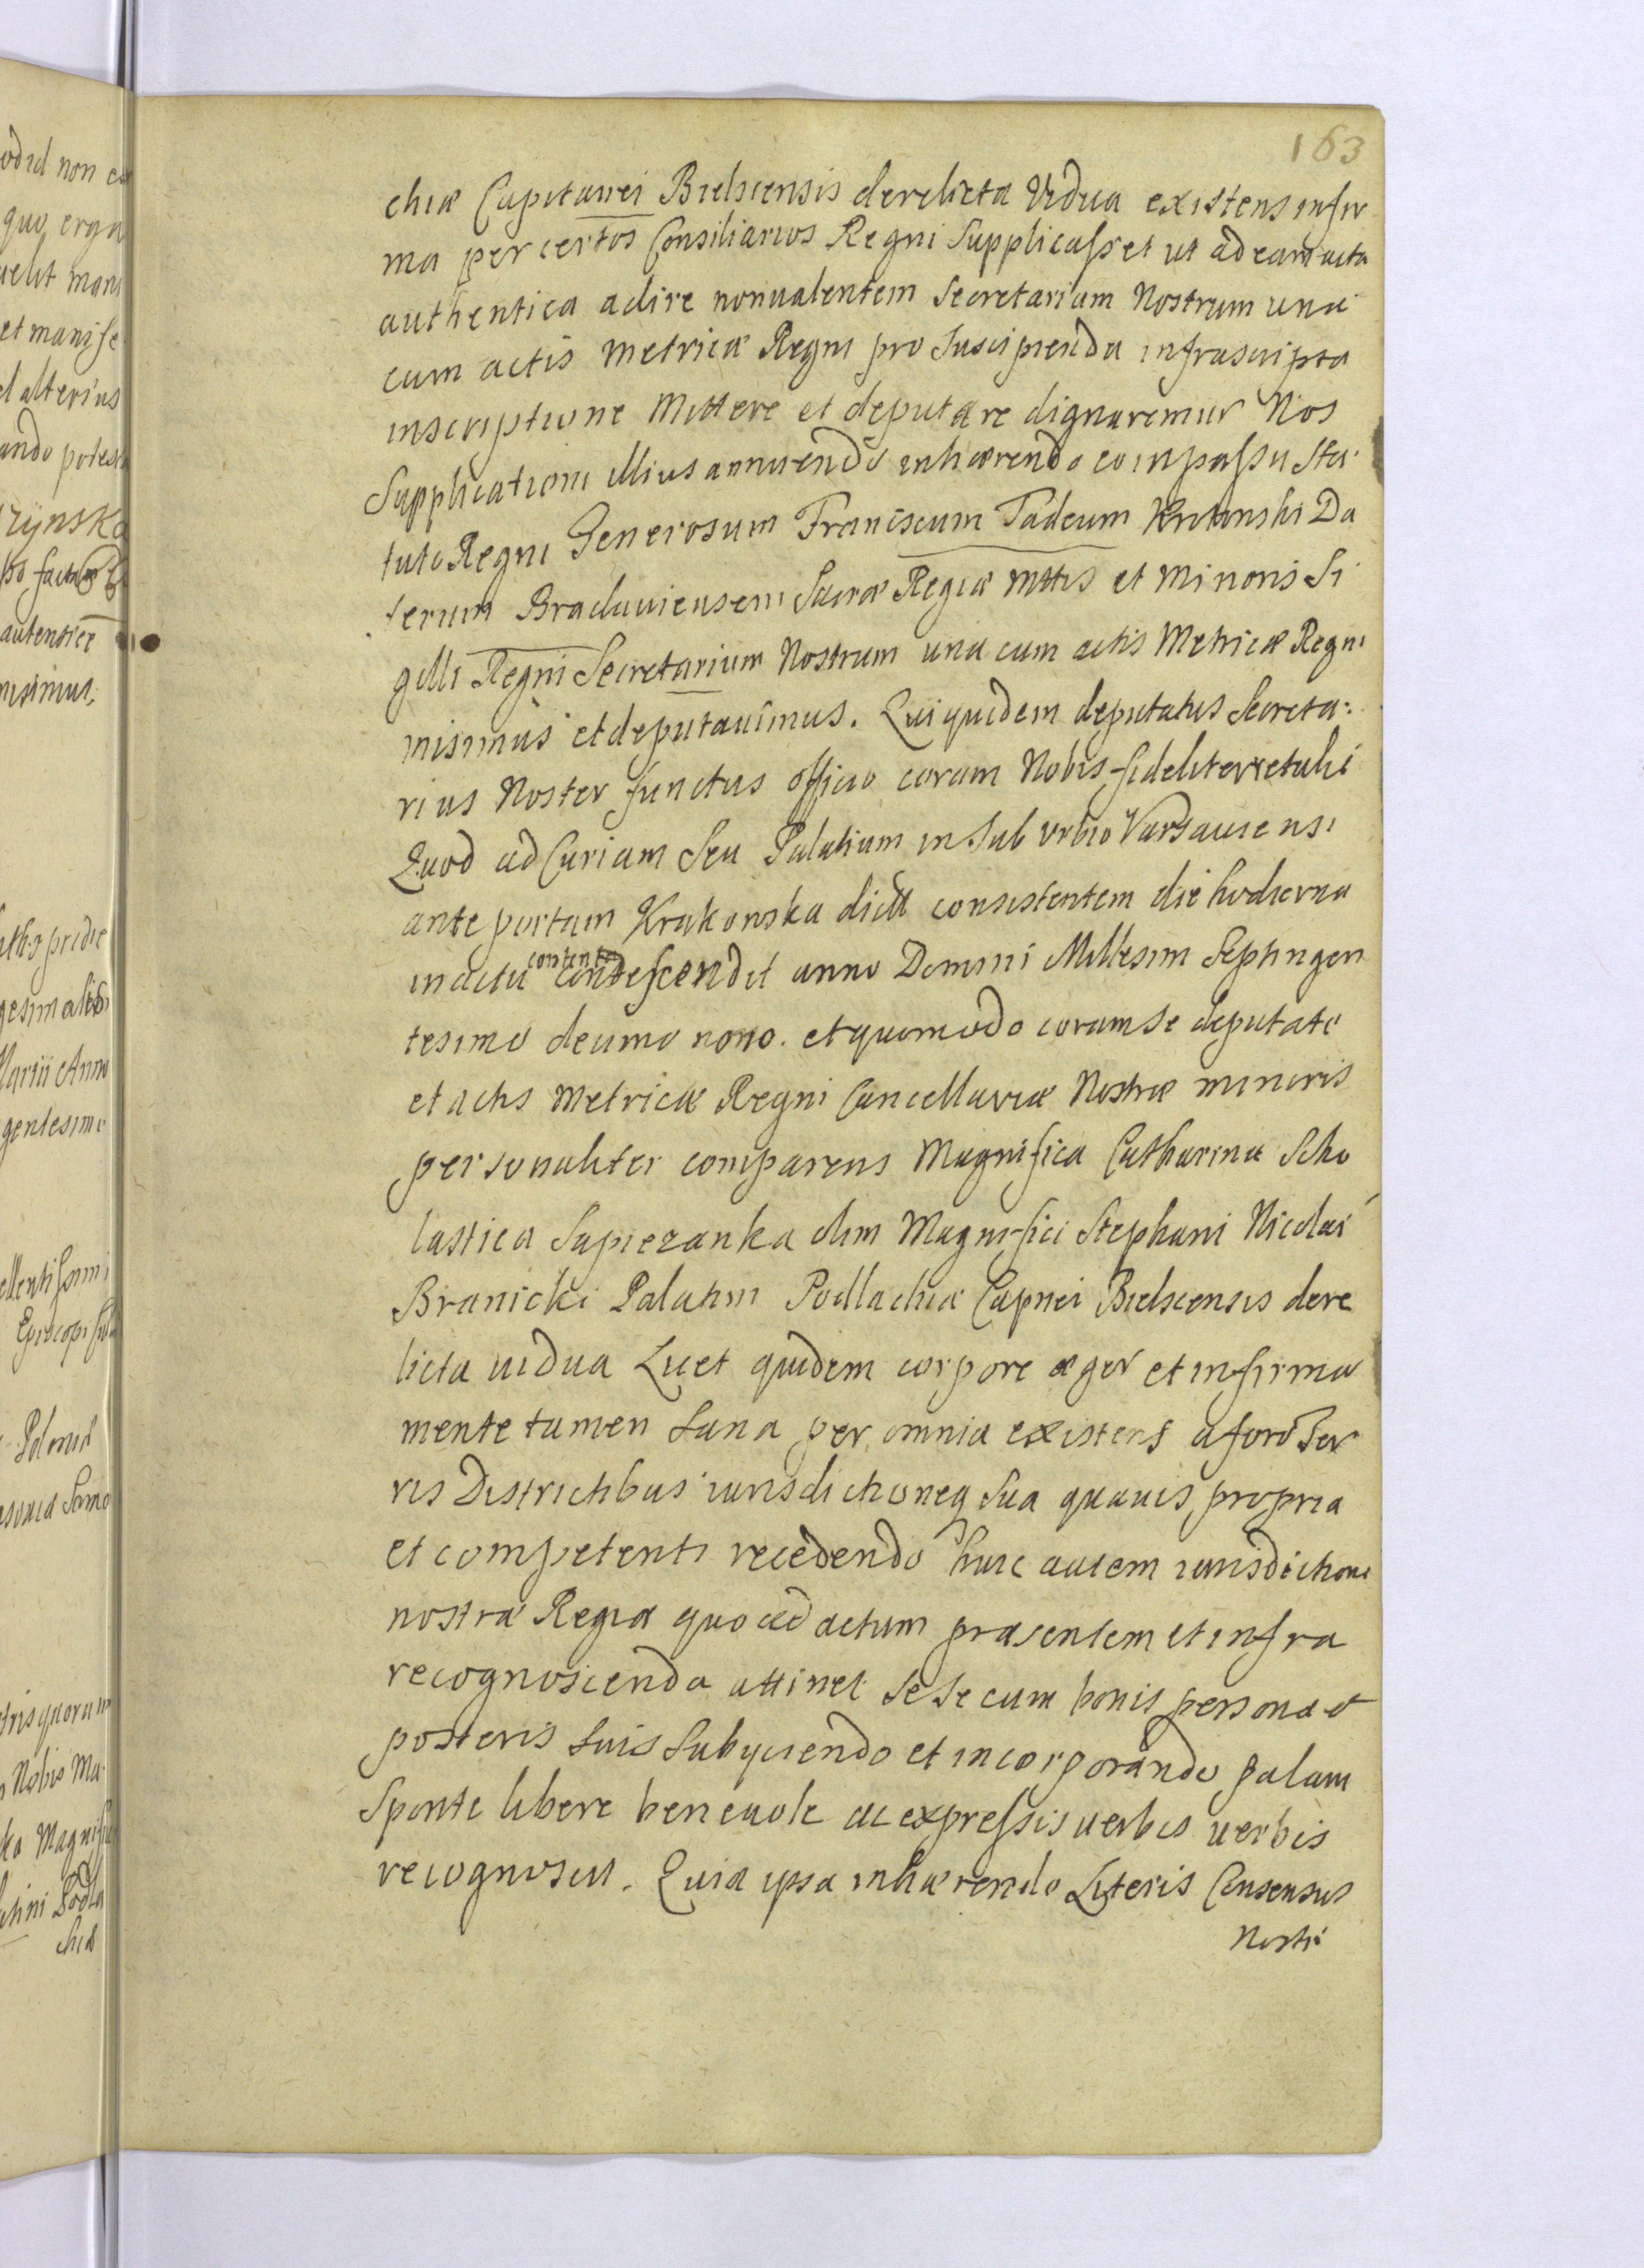 163
chiæ Capitanei Bielscensis derelicta Vidua existens infir
ma per certos Consiliarios Regni Supplicasset ut ad eam acta
authentica adire nonualentem Secretarium Nostrum una
cum actis Metricæ Regni pro Suscipienda infrascripta
inscriptione Mittere et deputare dignaremur Nos
Supplicationi illius annuendo inhærendo compassu Sta
tuto Regni Generosum Franciscum Tadeum Da
terum Braclauiensem Sacræ Regiæ Mttis et Minoris Si
gilli Regni Secretarium Nostrum una cum actis Metricæ Regni
misimus et deputauimus. Qui quidem deputatus Secreta:
rius Noster functus officio coram Nobis fideliter retuli
Quod ad Curiam Seu Palatium in Sub urbio Varsauiensi
ante portam Krakonska dict consistentem die hodierna
in actu contento condescendit anno Domini Millesim Septingen
tesimo decimo nono. et quomodo coram Se deputato
et actis Metricæ Regni Cancellariæ Nostræ minoris
personaliter comparens Magnifica Catharina Scho
lastica Sapiezanka olim Magnifici Stephani Nicolai
Branicki Palatini Podlachiæ Capnei Bielscensis dere
licta uidua Licet quidem corpore æger et infirma
mente tamen Sana per omnia existens a foro Ter
ris Districtibus iurisdictioneq Sua quauis propria
et competenti recedendo huic autem iurisdictioni
nostræ Regiæ quo ad actum præsentem et infra
recognoscenda attinet Se Se cum bonis persona et
posteris Suis Subyciendo et incorporando palam
Sponte libere beneuole ac expressis uerbis uerbis
recognouit. Quia ipsa inhærendo Literis Consensus
Nostri
od id non
quo erga
uelit
et manife
el alterius
ando potest
rzynska
autentice
misimus,
pridie
Martii Anno
gentesimo
ellentissimi
Episcopi
Poloniæ
tris quorum
Nobis Ma
ka Magnifi
atini Podla
chiæ